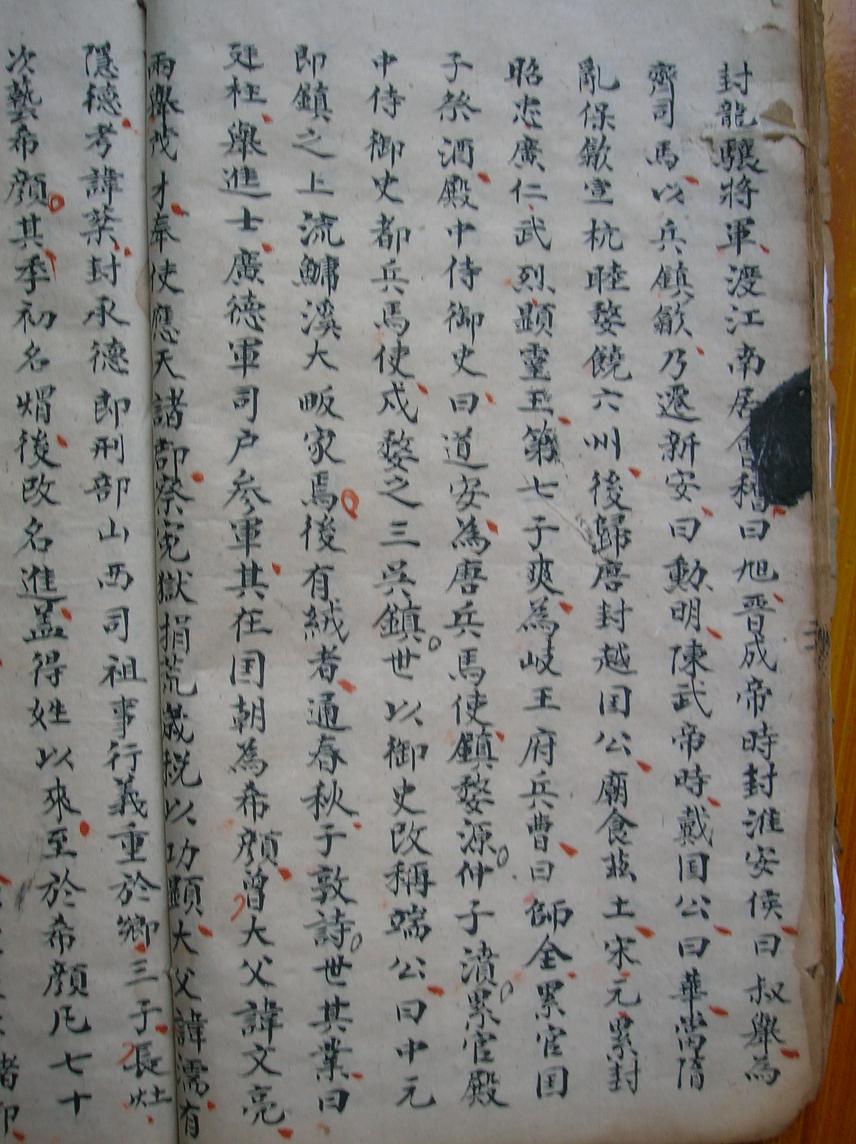 封龍驤將軍渡江南居會稽曰旭晋成帝時封淮安侯曰叔舉為
齊司馬以兵鎮歙乃遷新安曰勳明陳武帝時戴国公曰華當隋
亂保歙宣杭睦婺饒六州後歸唐封越国公廟食茲土宋元累封
昭忠廣仁武烈顕霊王第七子爽為岐王府兵曹曰師全累官国
子祭酒殿中侍御史曰道安為唐兵馬使鎮婺源仲子濆累官殿
中侍御史都兵馬使戍婺之三吴鎮世以御史改稱端公曰中元
即鎮之上流鱅溪大畈家焉後有絨者通春秋于敦詩世其業曰
廷柱舉進士廣德軍司户参軍其在国朝為希顔曾大父諱文亮
兩舉茂才奉使應天諸郡祭寃獄捐荒歲税以功顕大父諱濡有
隱德考諱棨封承德郎刑部山西司祖事行義重於鄉三子長灶
次藝希顔其季初名焆後改名進盖得姓以來至於希顔凡七十